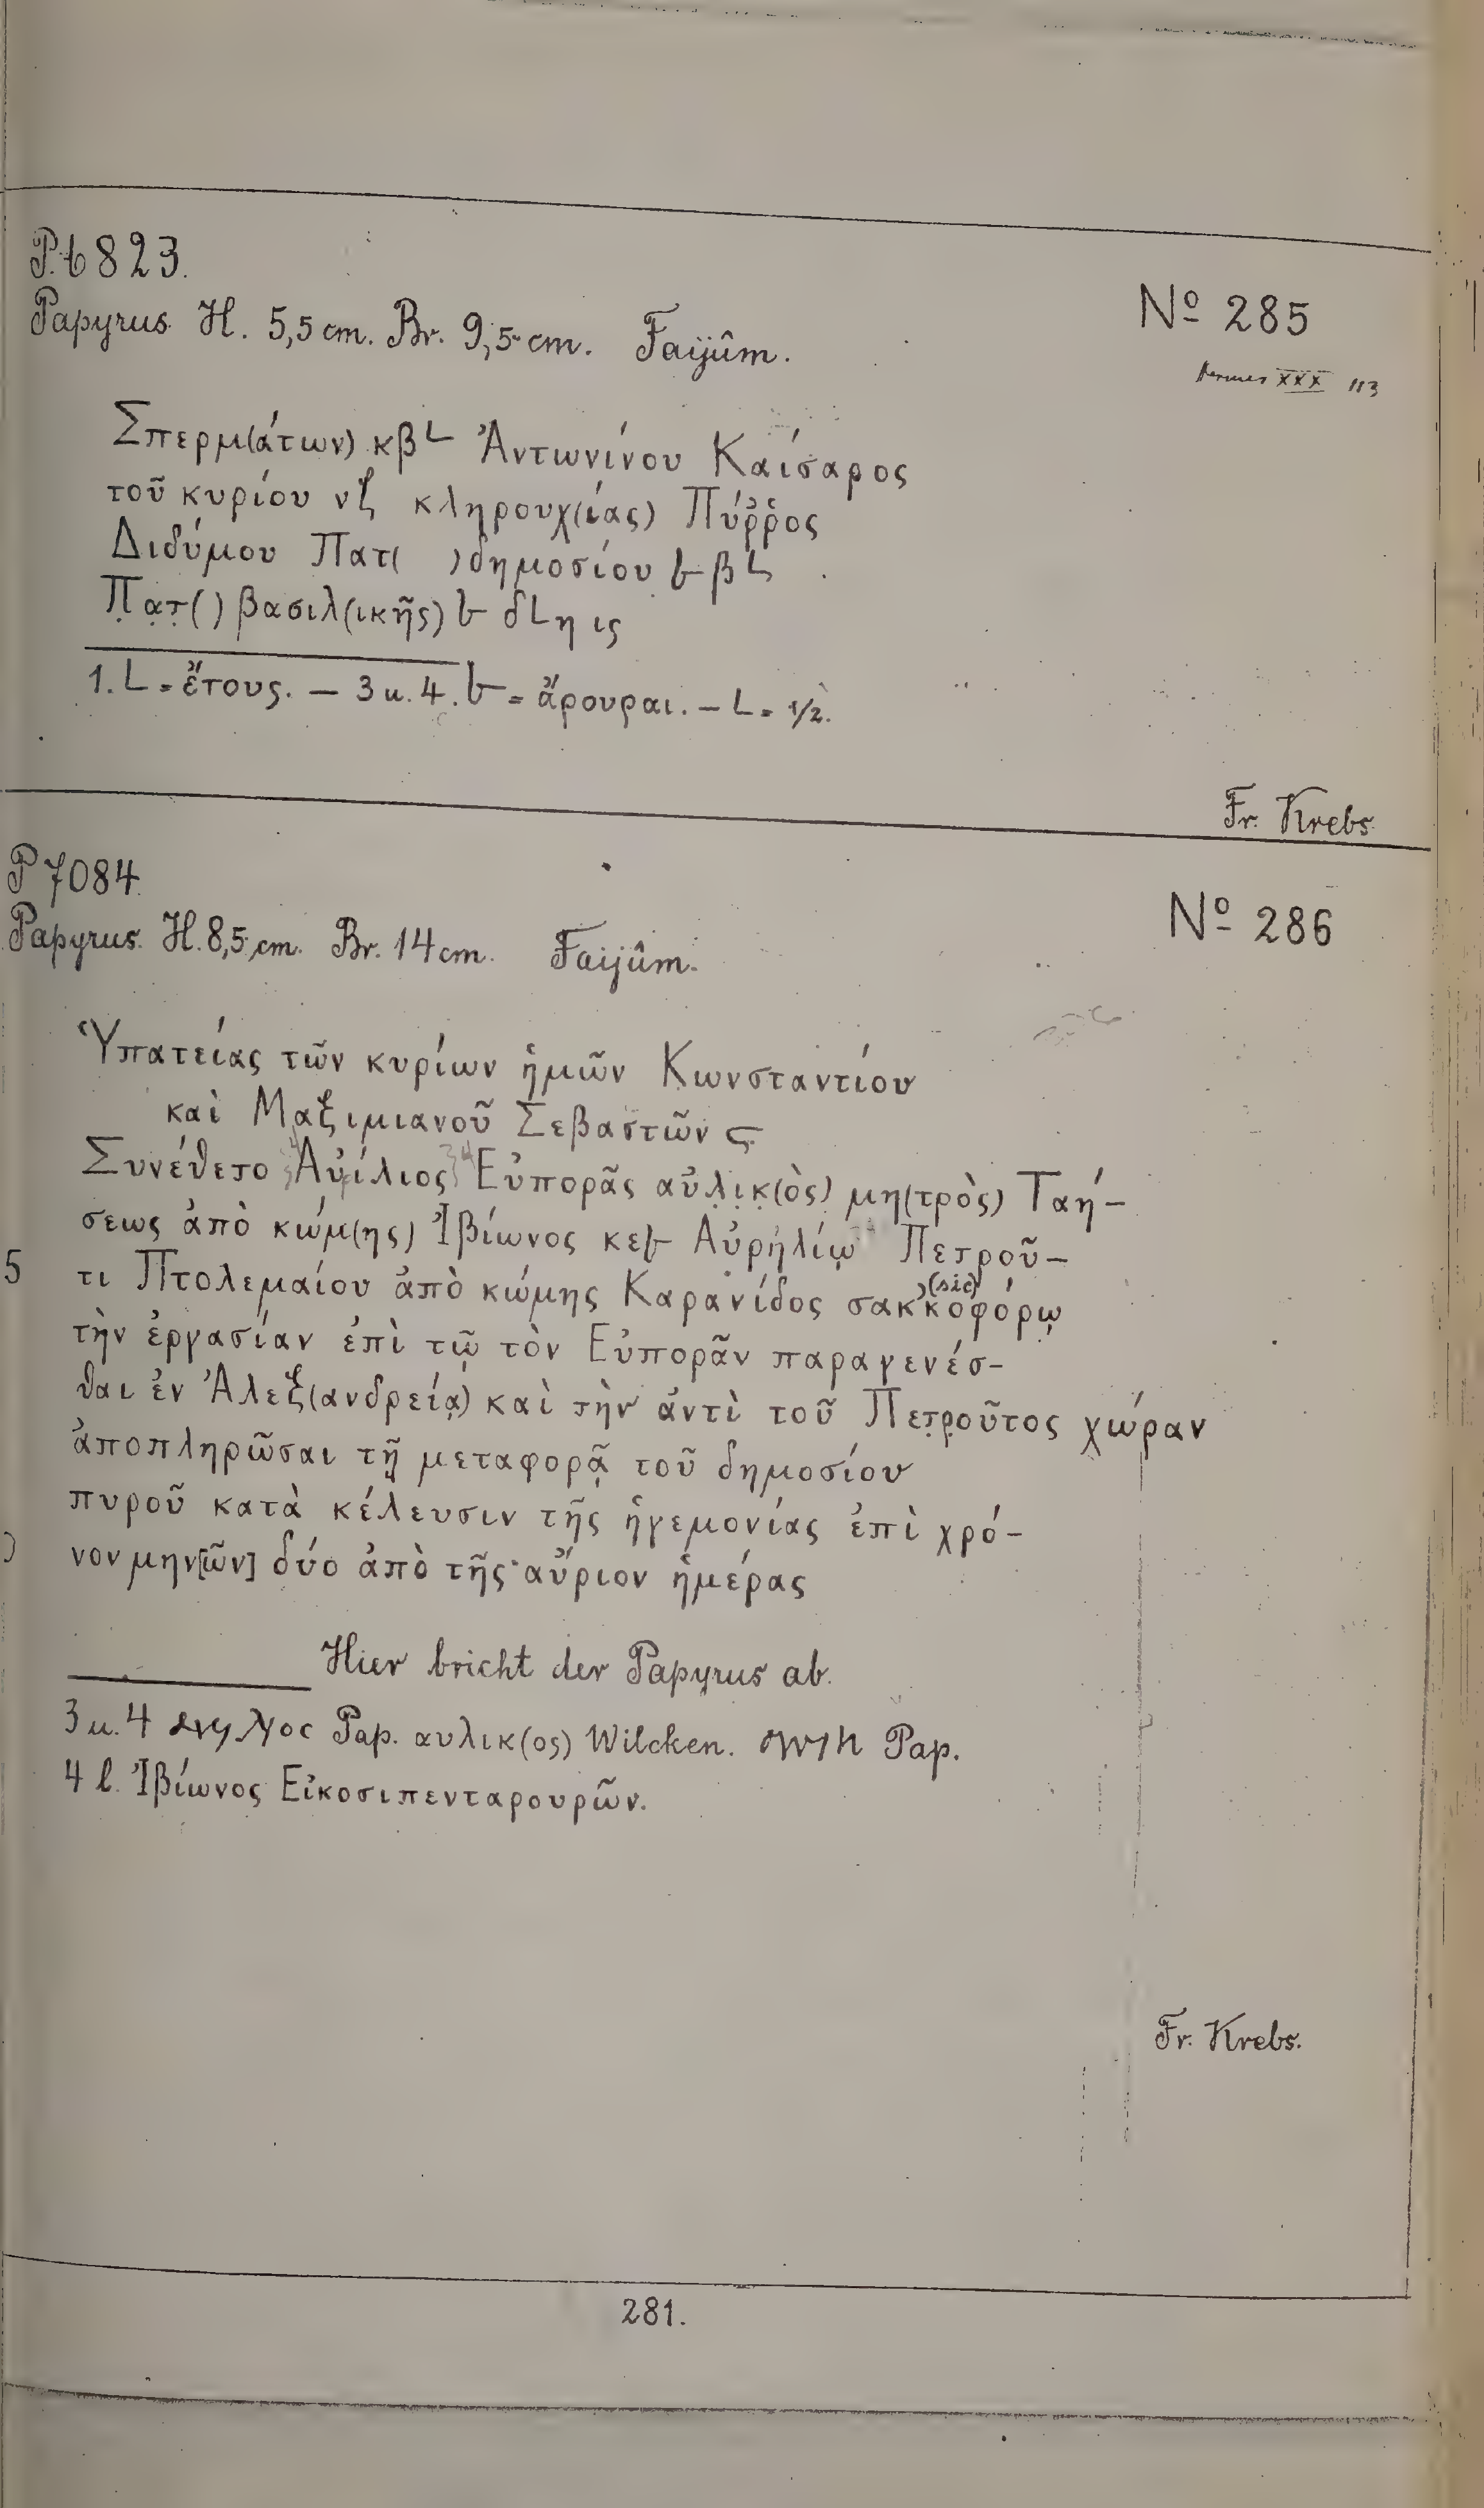 P. 6823.
Papyrus. H. 5,5 cm. Br. 9,5 cm. Faijûm.
Nº 285
Hermes XXX 113
Σπερμ(άτων) κβ L Ἀντωνίνου Καίσαρος
τοῦ κυρίου νζ κληρουχ(ίας) Πύῤῥος
Διδύμου Πατ( ) δημοσίου 𐅵 β L
Π̣ạτ̣( ) βασιλ(ικῆς) δ L η ις
1. L = ἔτους. — 3 u. 4. = ἄρουραι. — L = 1/2.
Fr. Krebs
P 7084
Papyrus. H. 8,5 cm. Br. 14 cm. Faijûm.
Nº 286
Ὑπατείας τῶν κυρίων ἡμῶν Κωνσταντίου
καὶ Μαξιμιανοῦ Σεβαστῶν ϛ
Συνέθετο Αὐίλιος Εὐπορᾶς αὐλ̣ι̣κ̣(ὸς) μη(τρὸς) Ταή-
σεως ἀπὸ κώμ(ης) Ἰβίωνος κε Αὐρηλίῳ Πετροῦ-
5 τι Πτολεμαίου ἀπὸ κώμης Καρανίδος σακκοφόρῳ (sic)
τὴν ἐργασίαν ἐπὶ τῷ τὸν Εὐπορᾶν παραγενέσ-
θαι ἐν Ἀλεξ(ανδρείᾳ) καὶ τὴν ἀντὶ τοῦ Πετ̣ρ̣οῦτος χώραν
ἀποπληρῶσαι τῇ μεταφορᾷ τοῦ δημοσίου
πυροῦ κατὰ κέλευσιν τῆς ἡγεμονίας ἐπὶ χρό-
νον μην[ῶν] δύο ἀπὸ τῆς αὔριον ἡμέρας
Hier bricht der Papyrus ab.
3 u. 4 Pap. αυλικ(ος) Wilcken. Pap.
4 l. Ἰβίωνος Εἰκοσιπενταρουρῶν.
Fr. Krebs.
281.